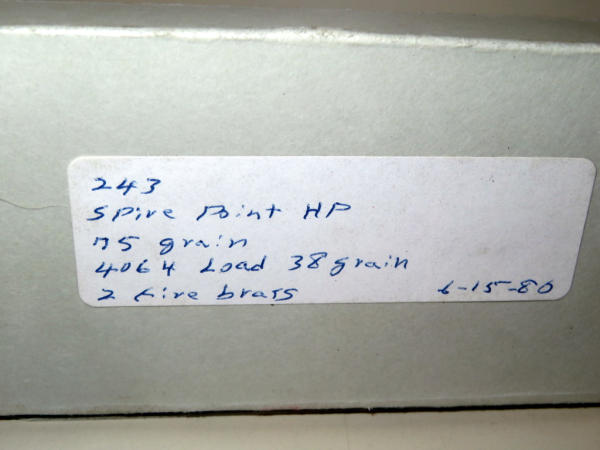 243
Spire Point HP
75 grain
4064 Load 38 grain
2 fire brass 6-15-80